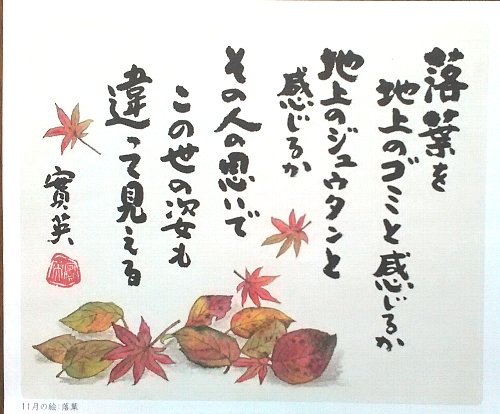 落葉を
地上のゴミと感じるか
地上のジュウタンと
感じるか
その人の思いで
この世の姿も
違って見える
實英
11月の絵:落葉